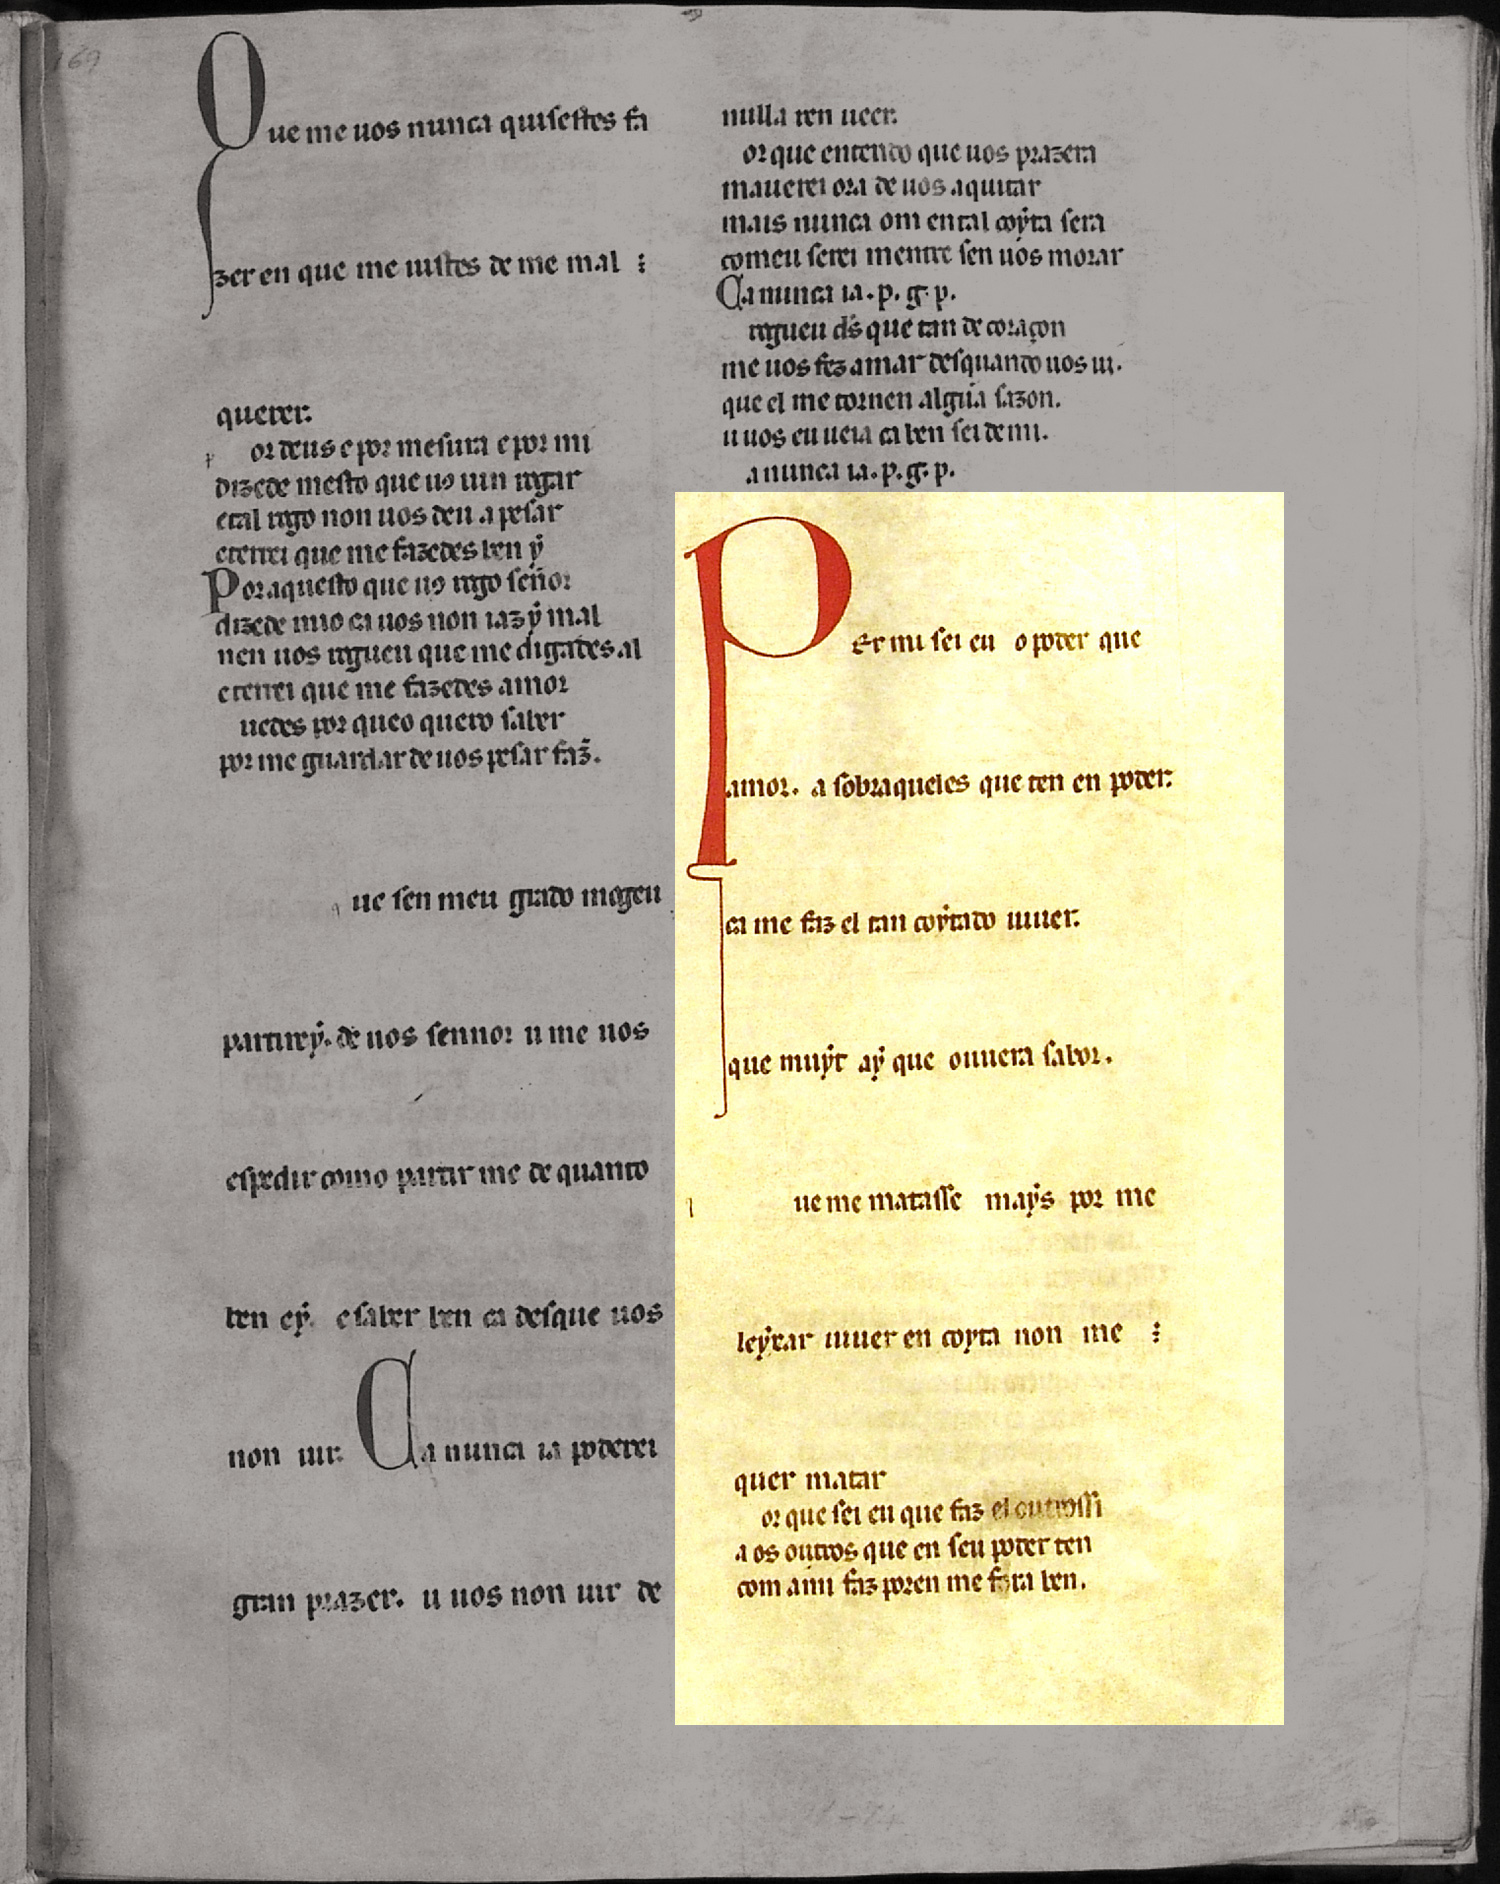 169
Que me uos nunca quisestes fa
zer en que me uistes de me mal :
querer.
p or deus e por mesura e por mi
dizede mesto que uo uin rogar
e tal rogo non uos deu a pesar
e terrei que me fazedes ben ẏ
Por aquesto que uo rogo señor
dizede mio ca uos non iaz ẏ mal
nen uos rogueu que me digades al
e terrei que me fazedes amor
uedes por queo quero saber
por me guardar de uos pesar faz̃.
q ue sen meu grado mogeu
partireẏ. de uos sennor u me uos
espedir como partir me de quanto
ben eẏ. e saber ben ca desque uos
non uir. Ca nunca ia poderei
gran prazer. u uos non uir de
nulla ren ueer.
or que entendo que uos prazera
mauerei ora de uos a quitar
mais nunca om en tal coẏta sera
comeu serei mentre sen uos morar
Ca nunca ia. p. g. p.
rogueu ds̃ que tan de coraçon
me uos fez amar desquando uos ui.
que el me tornen algũa sazon.
u uos eu ueia ca ben sei de mi.
a nunca ia. p. g. p.
PEr mi sei eu o poder que
amor. a sobraqueles que ten en poder.
ca me faz el tan coẏtado uiuer.
que muẏt aẏ que ouuera sabor.
q ue me matasse maẏs por me
leẏxar uiuer en coyta non me :
quer matar
or que sei eu que faz el outrossi
a os outros que en seu poder ten
com a mi faz poren me fora ben.